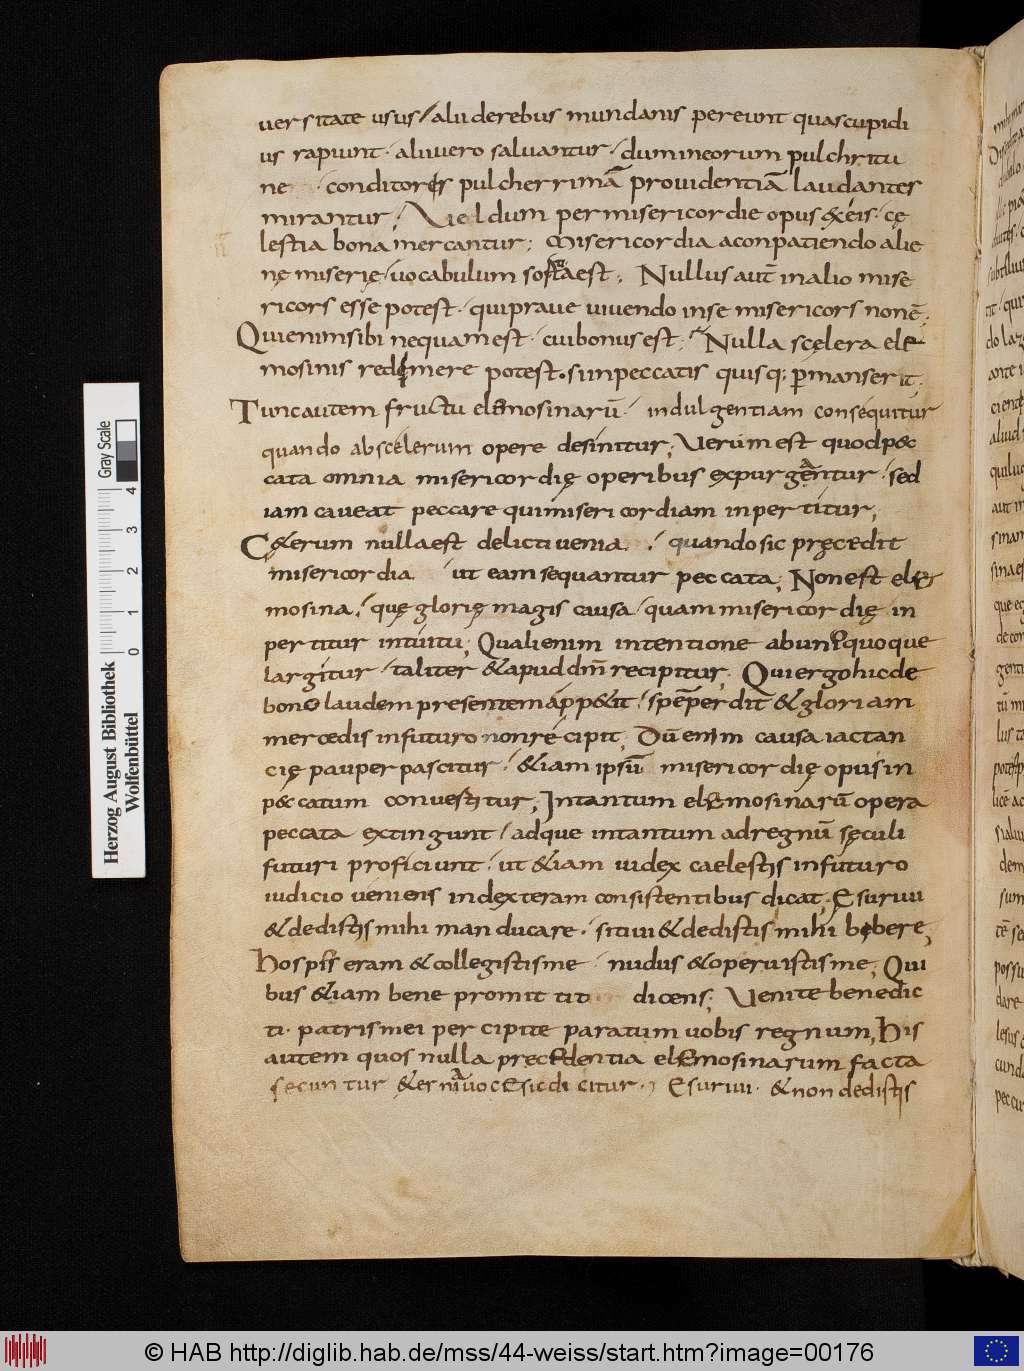 uersitate usus / alii derebus mundanis pereunt quas cupidi
us rapiunt · alii uero saluantur · dum ineorum pulchritu
ne · conditoris pulcherrimā prouidentiā laudantes
mirantur; Vel dum per misericordie opus exeis · cę
lestia bona mercantur; Misericordia aconpatiendo alie
nę miserię / uocabulum sortita est; Nullus aut̄ inalio mise
ricors esse potest · qui praue uiuendo inse misericors nonē;
Quienim sibi nequam est · cui bonus est; Nulla scęlera ele
mosinis redimere potest · si inpeccatis quis q; ꝑmanserit;
Tunc autem fructu elemosinarū · indulgentiam consequitur
quando abscelerum opere desinitur; Verum est quod p&
cata omnia misericordię operibus expurgentur / sed
iam caueat peccare qui misericordiam inpertitur;
C&erum nulla est delicti uenia · / quando sic pręcedit
misericordia · ut eam sequantur peccata; Non est ele
mosina / quę glorię magis causa / quam misericordię in
pertitur intuitu; Quali enim intentione ab unoquoque
largitur / taliter & apud dm̄ recipitur; Qui ergo hic de
bono laudem presentem app&it / spē perdit & gloriam
mercedis in futuro non recipit; Dū enim causa iactan
cię pauper pascitur / &iam ipsū misericordię opus in
p&catum conuertitur; Intantum elemosinarū opera
peccata extingunt / adque intantum adregnū sęculi
futuri proficiunt / ut &iam iudex caelestis infuturo
iudicio ueniens indexteram consistentibus dicat; Esuriui
& dedistis mihi manducare · / sitiui & dedistis mihi bibere;
Hospis eram & collegistis me · nudus & operuistis me; Qui
bus &iam bene promittit dicens; Venite benedic
ti · patris mei percipite paratum uobis regnum; His
autem quos nulla precedentia elemosinarum facta
secuntur &erni uoce sic dicitur · Esuriui · & non dedistis
Herzog August Bibliothek
Wolfenbüttel
Gray Scale
0 1 2 3 4
© HAB http://diglib.hab.de/mss/44-weiss/start.htm?image=00176